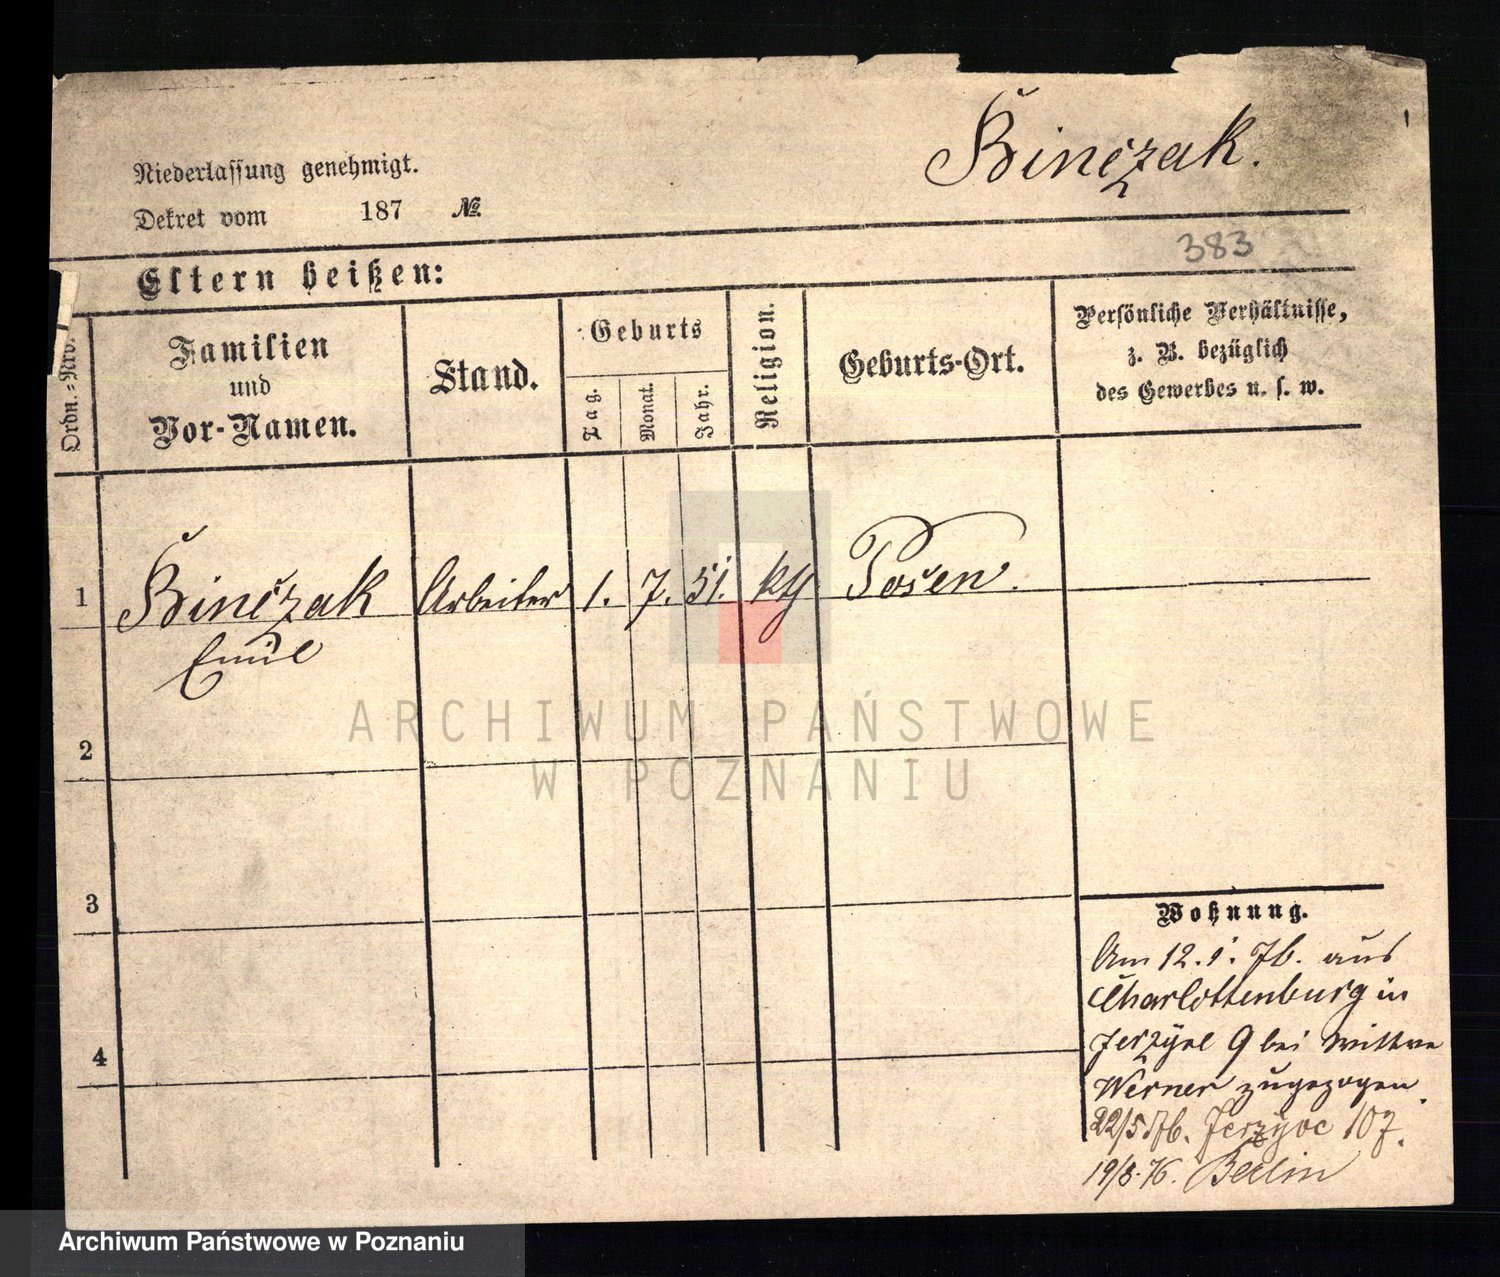 Binczak.
Niederlassung genehmigt.
Dekret vom 187 №.
383
Eltern heißen:
Ordn.=Nro.
Familien
und
Vor-Namen.
Stand.
Geburts
Tag.
Monat.
Jahr.
Religion.
Geburts-Ort.
Persönliche Verhältnisse,
z. B. bezüglich
des Gewerbes u. s. w.
1 Binczak Arbeiter 1. 7. 51. kth Posen.
Emil
2
3
4
Wohnung.
Am 12. 1. 76. aus
Charlottenburg in
9 bei Wittwe
Werner zugezogen.
22/5 76. 107.
19/8. 76. Berlin
ARCHIWUM PAŃSTWOWE
W POZNANIU
Archiwum Państwowe w Poznaniu